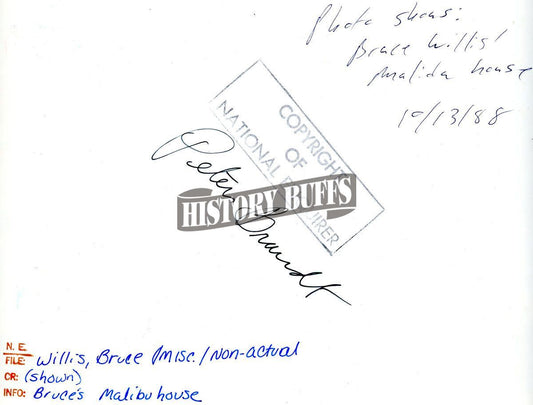 Photo shows:
Bruce Willis'
Malibu house
10/13/88
COPYRIGHT
OF
NATIONAL ENQUIRER
Peter Brandt
HISTORY BUFFS
N.E.
FILE: Willis, Bruce Misc./Non-actual
CR: (shown)
INFO: Bruce's Malibu house